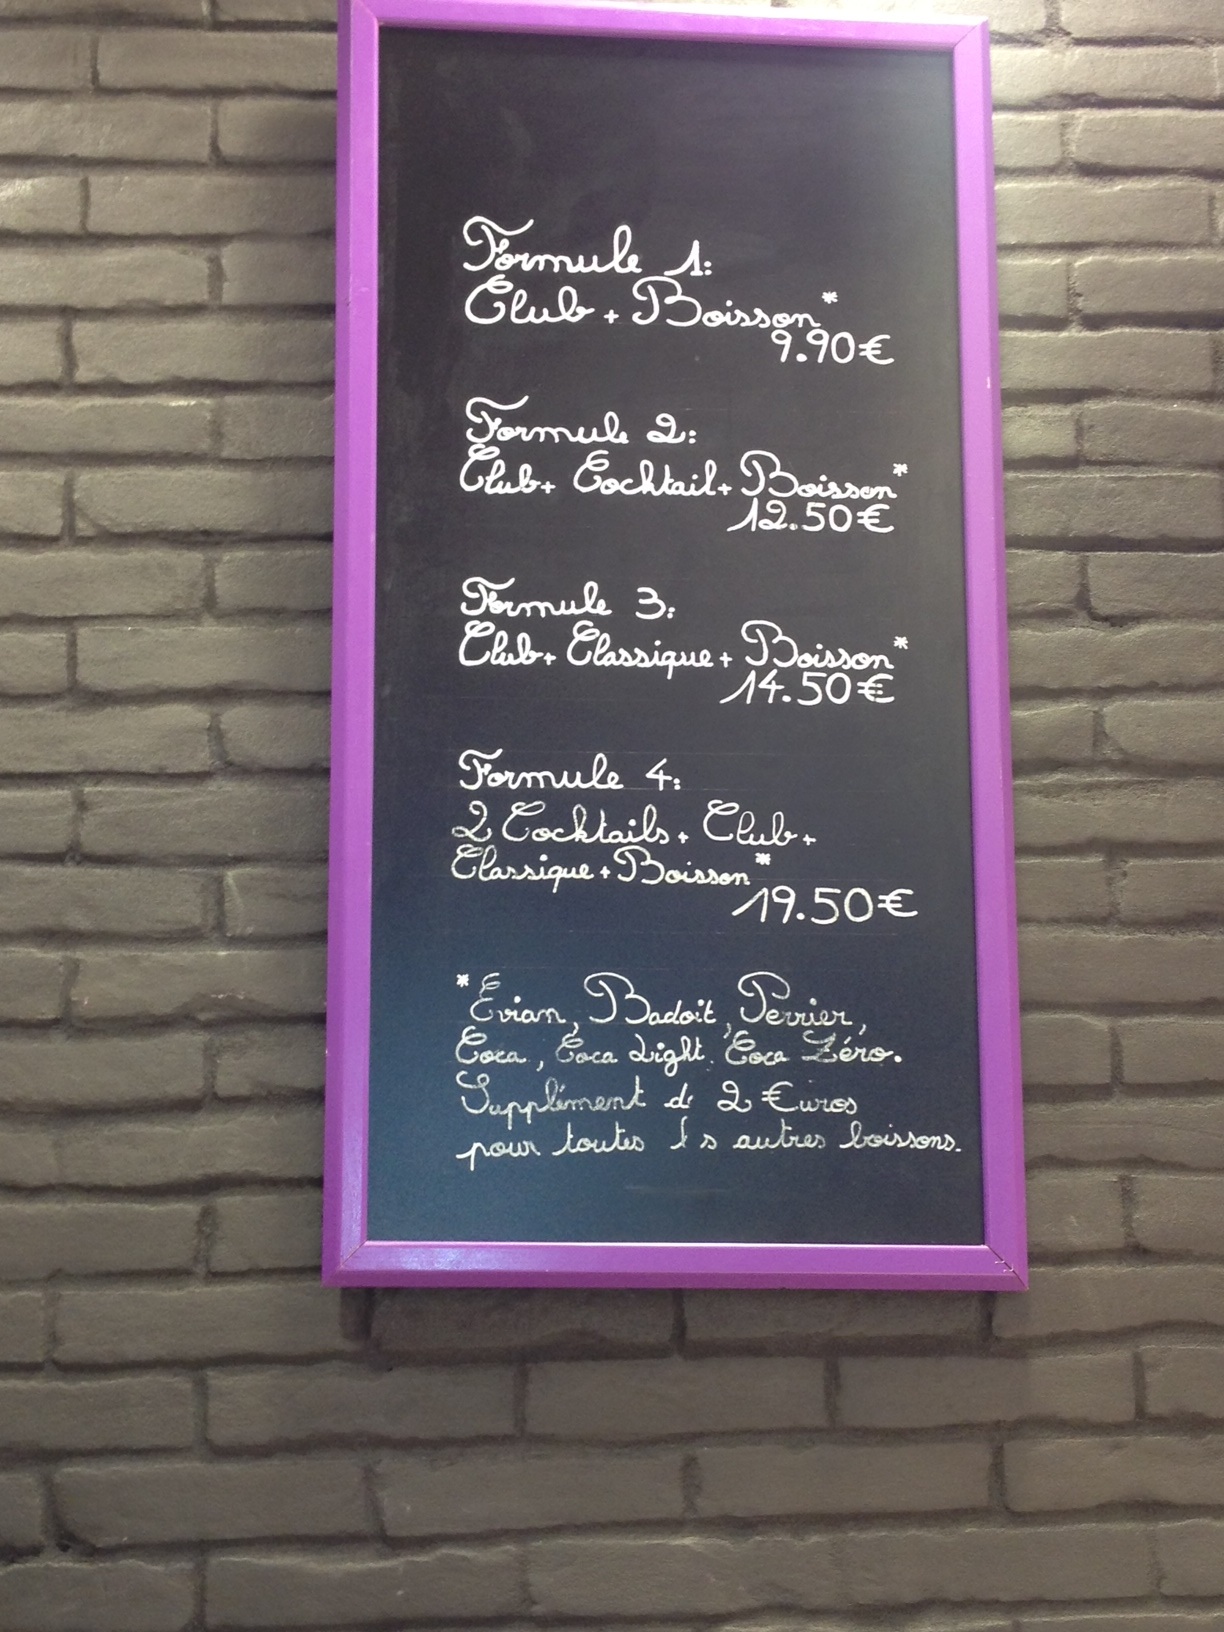 Formule 1:
Club + Boisson*
9.90€
Formule 2:
Club + Cocktail + Boisson*
12.50€
Formule 3:
Club + Classique + Boisson*
14.50€
Formule 4:
2 Cocktails + Club +
Classique + Boisson*
19.50€
*Evian, Badoit, Perrier,
Coca, Coca Light, Coca Zéro.
Supplément d 2 €uros
pour toutes l s autres boissons.